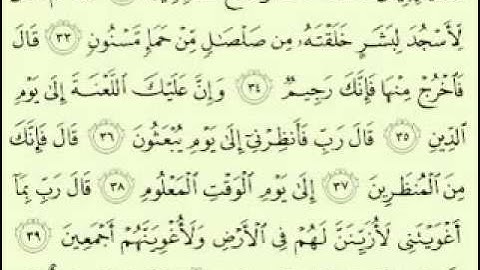 لِّأَسْجُدَ لِبَشَرٍ خَلَقْتَهُۥ مِن صَلْصَٰلٍ مِّنْ حَمَإٍ مَّسْنُونٍ ٣٣ قَالَ
فَٱخْرُجْ مِنْهَا فَإِنَّكَ رَجِيمٌ ٣٤ وَإِنَّ عَلَيْكَ ٱللَّعْنَةَ إِلَىٰ يَوْمِ
ٱلدِّينِ ٣٥ قَالَ رَبِّ فَأَنظِرْنِىٓ إِلَىٰ يَوْمِ يُبْعَثُونَ ٣٦ قَالَ فَإِنَّكَ
مِنَ ٱلْمُنظَرِينَ ٣٧ إِلَىٰ يَوْمِ ٱلْوَقْتِ ٱلْمَعْلُومِ ٣٨ قَالَ رَبِّ بِمَآ
أَغْوَيْتَنِى لَأُزَيِّنَنَّ لَهُمْ فِى ٱلْأَرْضِ وَلَأُغْوِيَنَّهُمْ أَجْمَعِينَ ٣٩